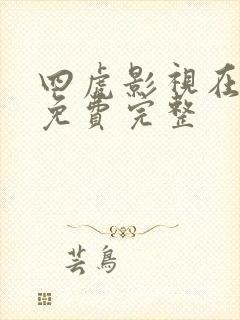 四虎影視在
免費完整
芸鳥